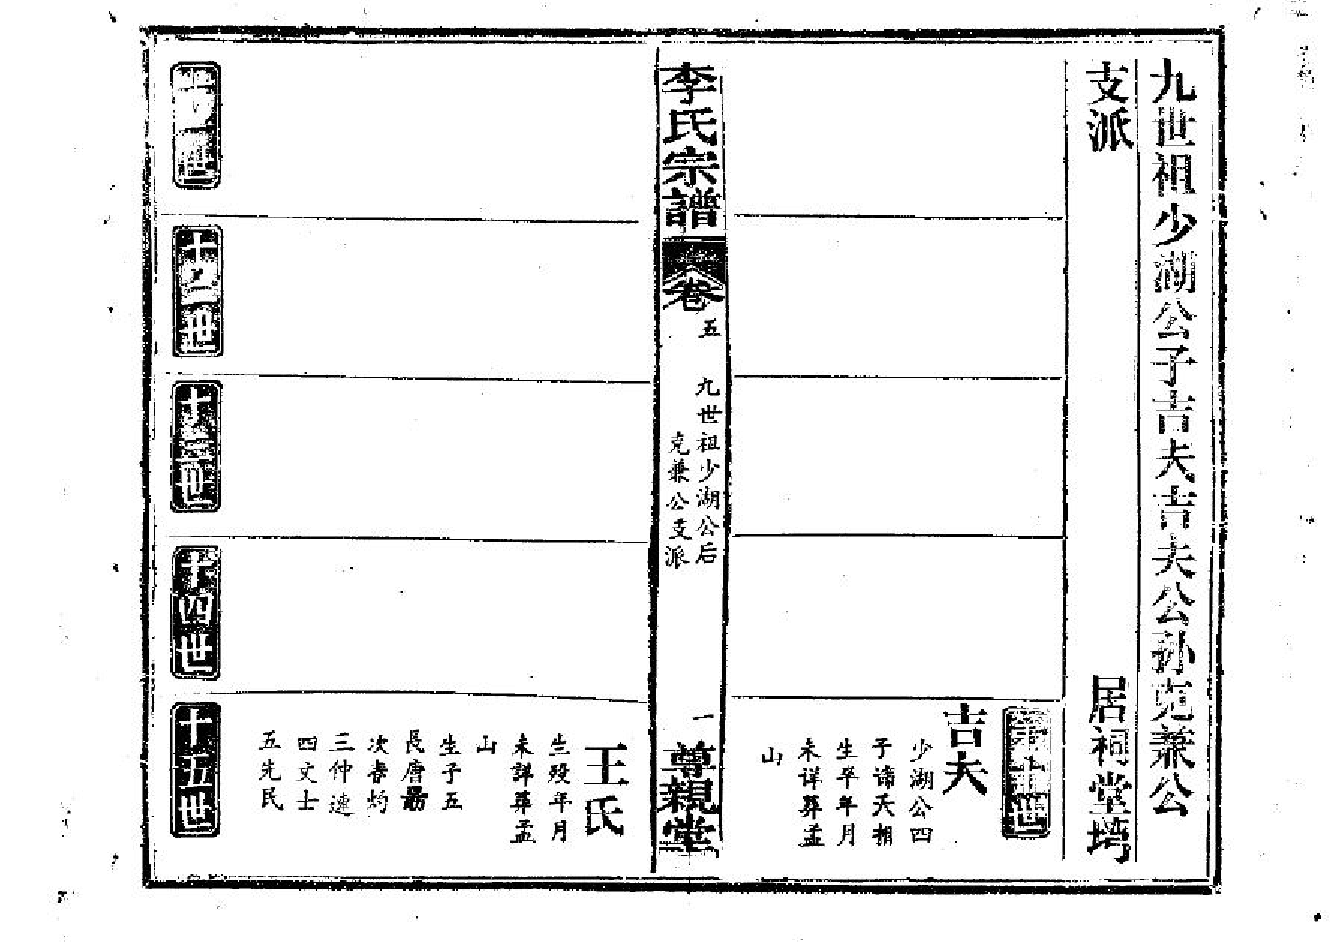 九世祖少湖公子吉夫吉夫公孙克兼公
支派 居祠堂塆
第十世
吉夫
少湖公四
子諦天相
生卒年月
未详葬孟
山
李氏宗譜
卷五
九世祖少湖公后
克兼公支派
一
尊親堂
王氏
生殁年月
未詳葬孟
山
生子五
長唐
次春灼
三仲連
四文士
五先民
十一世
十二世
十三世
十四世
十五世